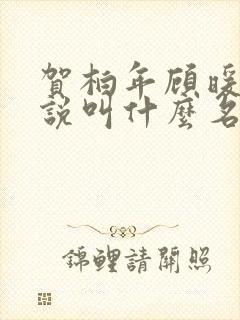 賀柏年顧暖
說叫什麼名
錦鯉請開照